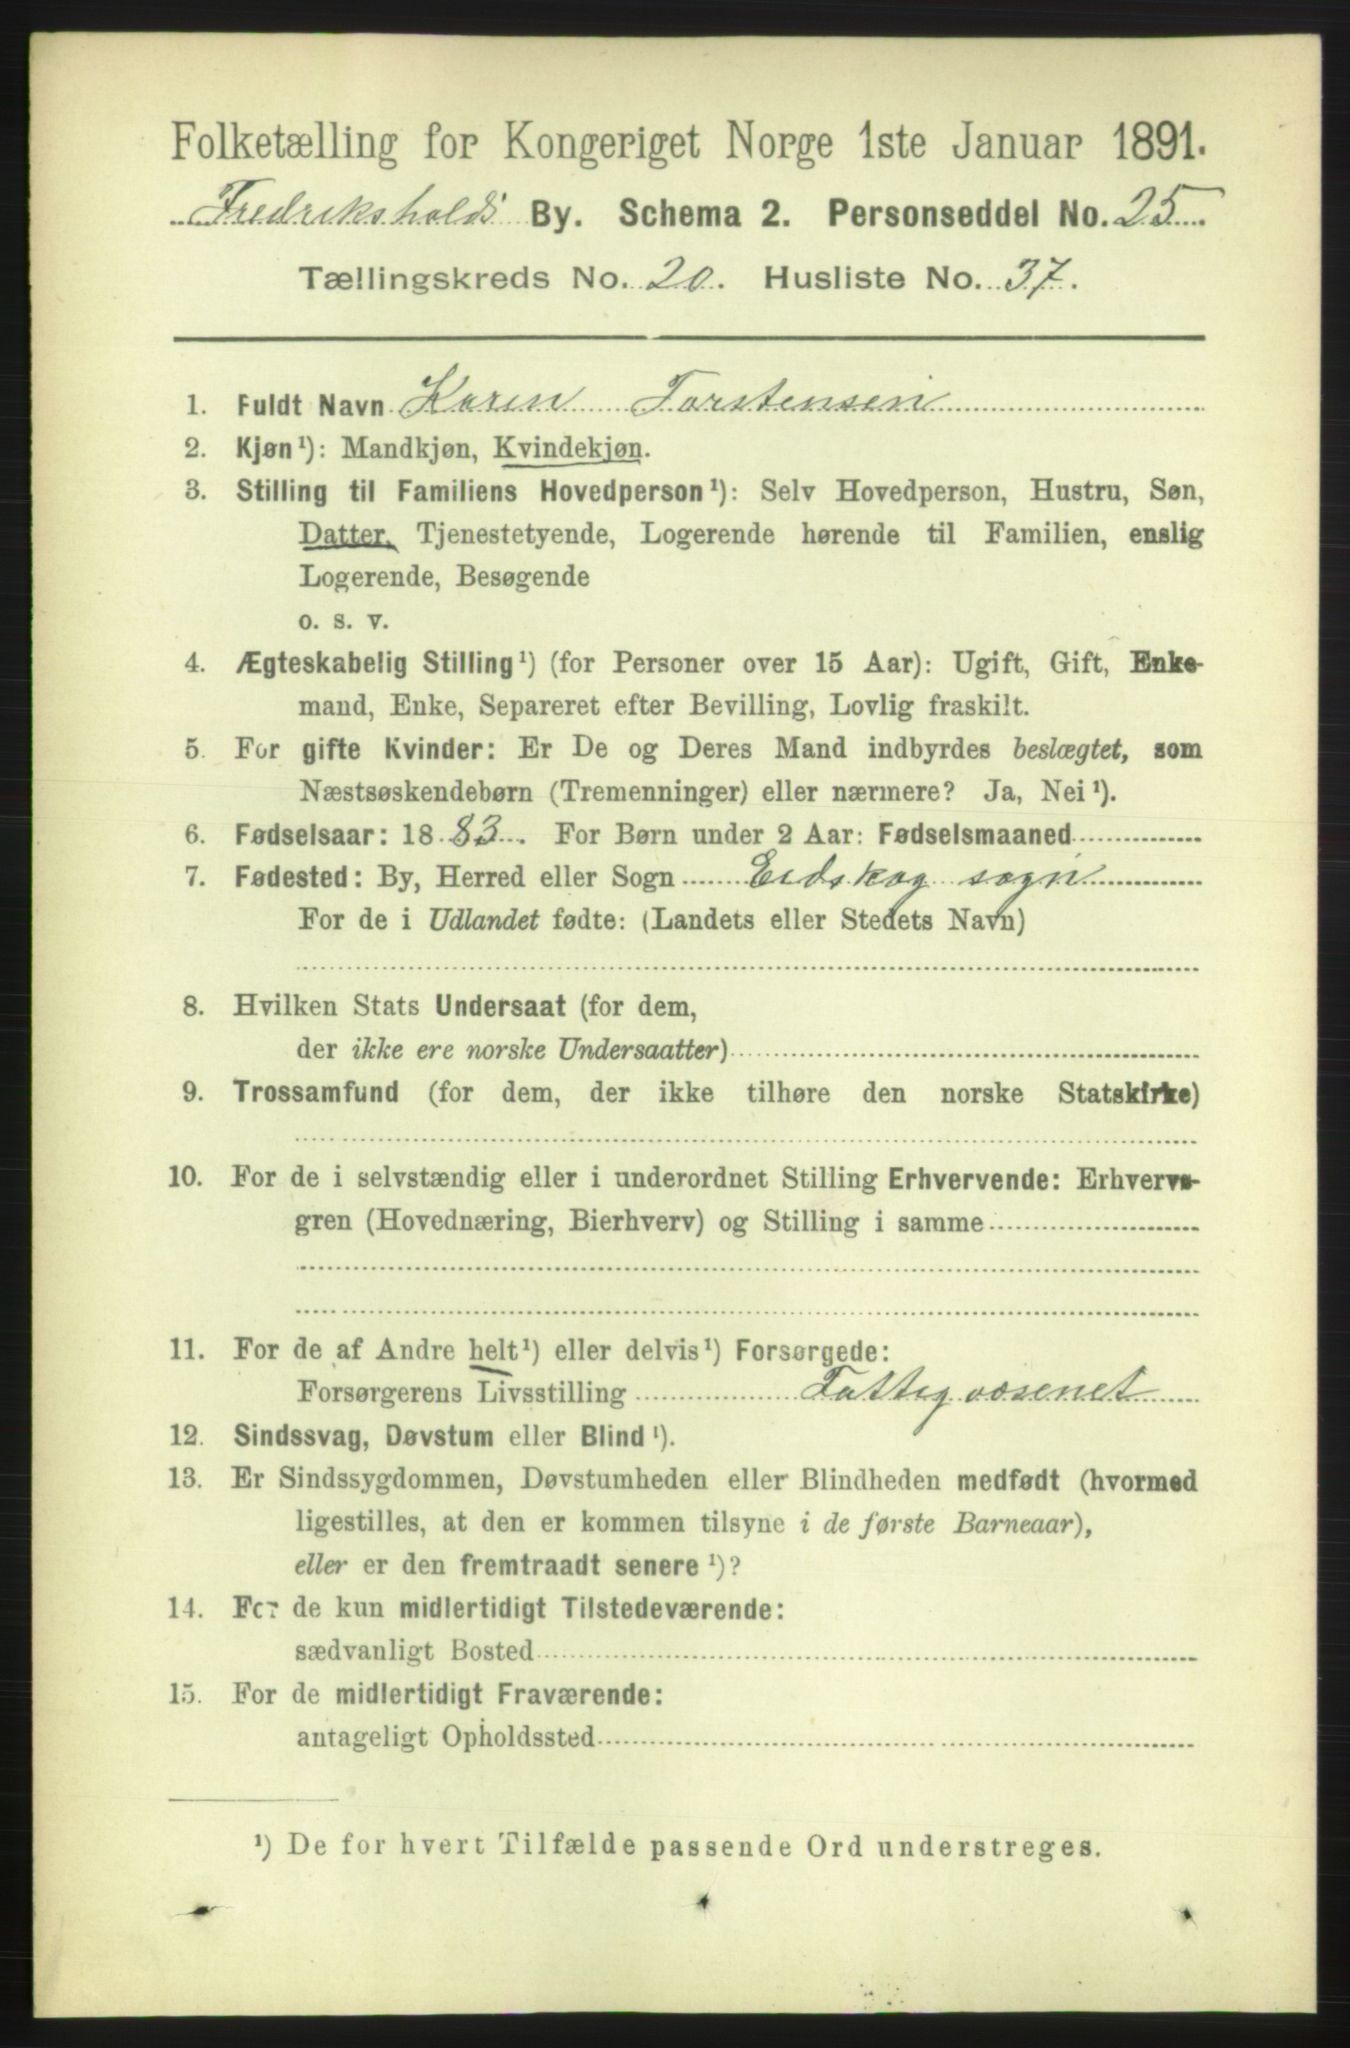 Folketælling for Kongeriget Norge 1ste Januar 1891.
Fredrikshalds By. Schema 2. Personseddel No. 25.
Tællingskreds No. 20. Husliste No. 37.
1. Fuldt Navn Karen Torstensen
2. Kjøn¹): Mandkjøn, Kvindekjøn.
3. Stilling til Familiens Hovedperson¹): Selv Hovedperson, Hustru, Søn,
Datter, Tjenestetyende, Logerende hørende til Familien, enslig
Logerende, Besøgende
o. s. v.
4. Ægteskabelig Stilling¹) (for Personer over 15 Aar): Ugift, Gift, Enke-
mand, Enke, Separeret efter Bevilling, Lovlig fraskilt.
5. For gifte Kvinder: Er De og Deres Mand indbyrdes beslægtet, som
Næstsøskendebørn (Tremenninger) eller nærmere? Ja, Nei¹).
6. Fødselsaar: 1883. For Børn under 2 Aar: Fødselsmaaned
7. Fødested: By, Herred eller Sogn Eidskog sogn
For de i Udlandet fødte: (Landets eller Stedets Navn)
8. Hvilken Stats Undersaat (for dem,
der ikke ere norske Undersaatter)
9. Trossamfund (for dem, der ikke tilhøre den norske Statskirke)
10. For de i selvstændig eller i underordnet Stilling Erhvervende: Erhvervs-
gren (Hovednæring, Bierhverv) og Stilling i samme
11. For de af Andre helt¹) eller delvis¹) Forsørgede:
Forsørgerens Livsstilling Fattigvæsenet
12. Sindssvag, Døvstum eller Blind¹).
13. Er Sindssygdommen, Døvstumheden eller Blindheden medfødt (hvormed
ligestilles, at den er kommen tilsyne i de første Barneaar),
eller er den fremtraadt senere¹)?
14. For de kun midlertidigt Tilstedeværende:
sædvanligt Bosted
15. For de midlertidigt Fraværende:
antageligt Opholdssted
¹) De for hvert Tilfælde passende Ord understreges.